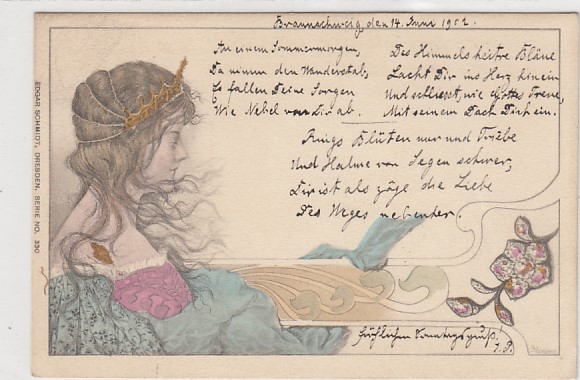 Braunschweig, den 14. Juni 1902.
An einem Sommermorgen,
Da nimm den Wanderstab,
Es fallen Deine Sorgen
Wie Nebel von Dir ab.
Des Himmels heitre Bläue
Lacht Dir ins Herz hinein
Und schliesst, wie Gottes Treue,
Mit seinem Dach Dich ein.
Rings Blüten nur und Triebe
Und Halme von Segen schwer,
Dir ist als zöge die Liebe
Des Weges nebenher.
Fröhlichen Sonntagsgruß!
EDGAR SCHMIDT, DRESDEN. SERIE NO. 330